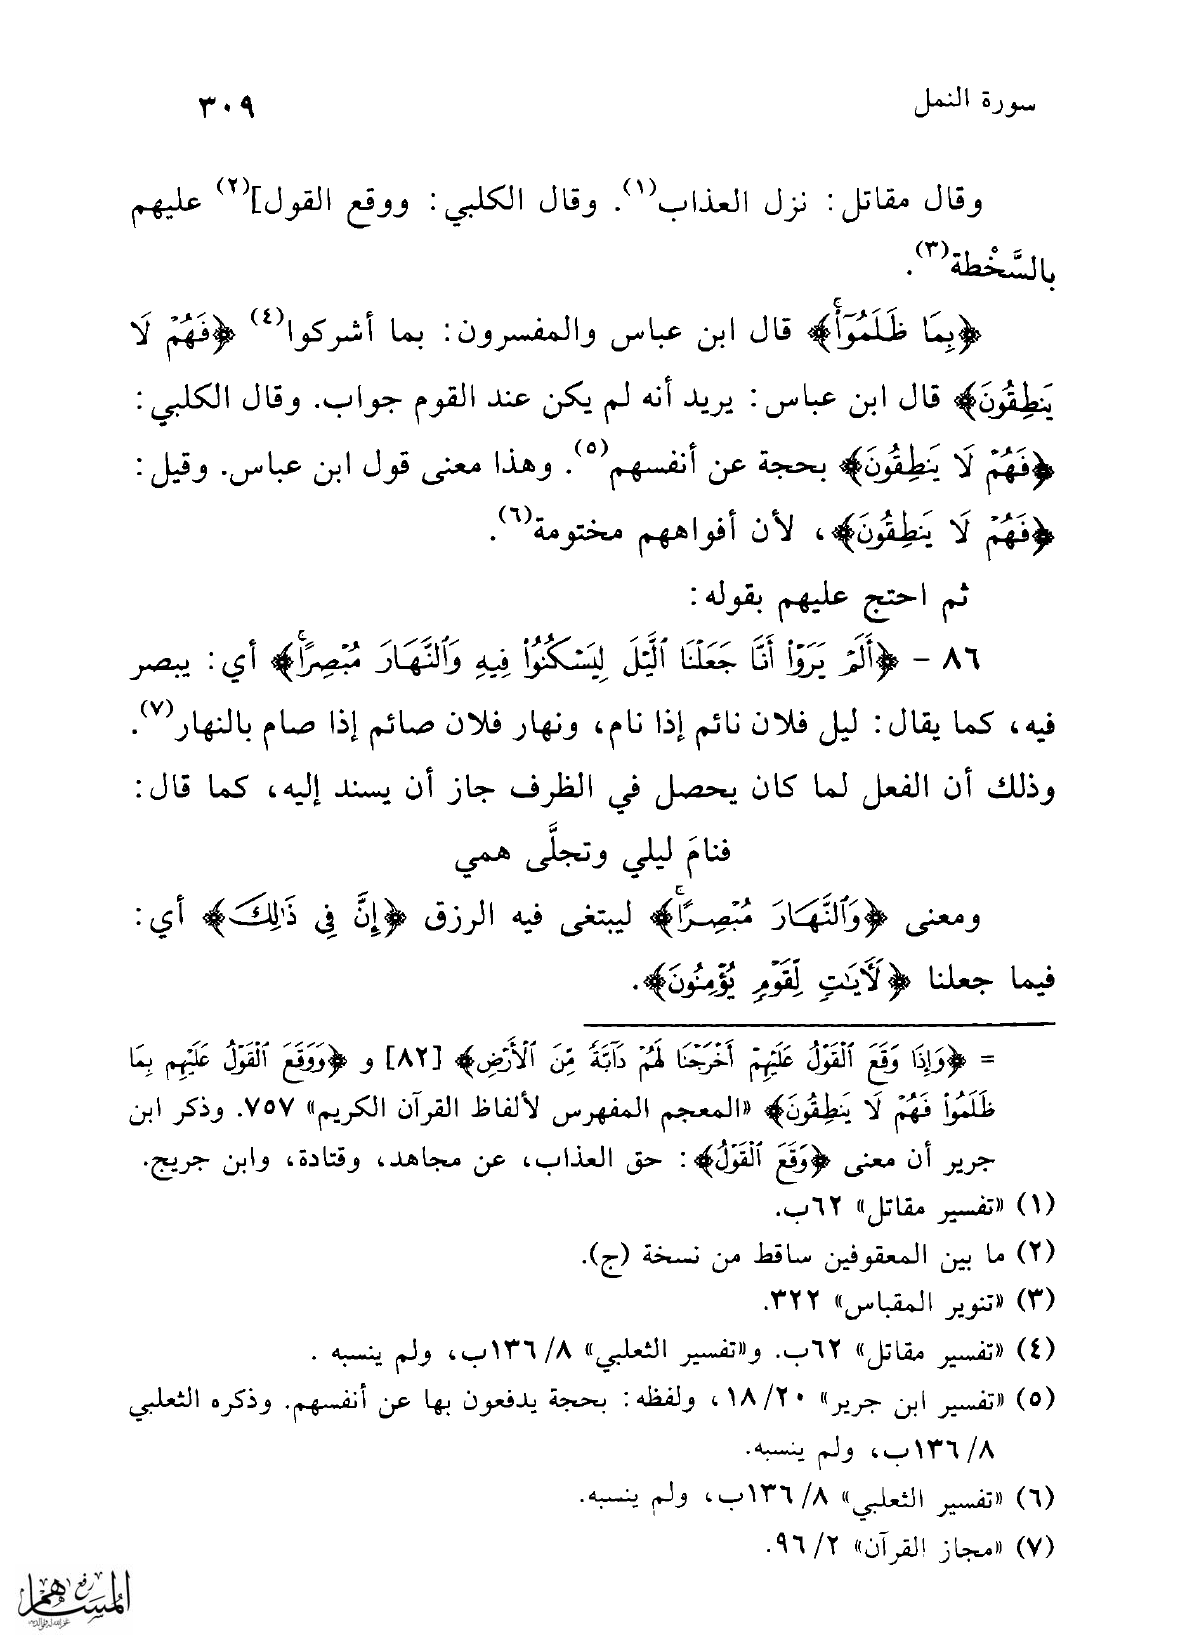 سورة النمل ٣٠٩
وقال مقاتل: نزل العذاب(١). وقال الكلبي: ووقع القول](٢) عليهم
بالسَّخْطة(٣).
﴿بِمَا ظَلَمُوٓاْۚ﴾ قال ابن عباس والمفسرون: بما أشركوا(٤) ﴿فَهُمْ لَا
يَنطِقُونَ﴾ قال ابن عباس: يريد أنه لم يكن عند القوم جواب. وقال الكلبي:
﴿فَهُمْ لَا يَنطِقُونَ﴾ بحجة عن أنفسهم(٥). وهذا معنى قول ابن عباس. وقيل:
﴿فَهُمْ لَا يَنطِقُونَ﴾، لأن أفواههم مختومة(٦).
ثم احتج عليهم بقوله:
٨٦ - ﴿أَلَمْ يَرَوْاْ أَنَّا جَعَلْنَا ٱلَّيْلَ لِيَسْكُنُواْ فِيهِ وَٱلنَّهَارَ مُبْصِرًاۚ﴾ أي: يبصر
فيه، كما يقال: ليل فلان نائم إذا نام، ونهار فلان صائم إذا صام بالنهار(٧).
وذلك أن الفعل لما كان يحصل في الظرف جاز أن يسند إليه، كما قال:
فنامَ ليلي وتجلَّى همي
ومعنى ﴿وَٱلنَّهَارَ مُبْصِرًاۚ﴾ ليبتغى فيه الرزق ﴿إِنَّ فِي ذَٰلِكَ﴾ أي:
فيما جعلنا ﴿لَأٓيَٰتٍ لِّقَوْمٍ يُؤْمِنُونَ﴾.
= ﴿وَإِذَا وَقَعَ ٱلْقَوْلُ عَلَيْهِمْ أَخْرَجْنَا لَهُمْ دَآبَّةً مِّنَ ٱلْأَرْضِ﴾ [٨٢] و ﴿وَوَقَعَ ٱلْقَوْلُ عَلَيْهِم بِمَا
ظَلَمُواْ فَهُمْ لَا يَنطِقُونَ﴾ «المعجم المفهرس لألفاظ القرآن الكريم» ٧٥٧. وذكر ابن
جرير أن معنى ﴿وَقَعَ ٱلْقَوْلُ﴾: حق العذاب، عن مجاهد، وقتادة، وابن جريج.
(١) «تفسير مقاتل» ٦٢ب.
(٢) ما بين المعقوفين ساقط من نسخة (ج).
(٣) «تنوير المقباس» ٣٢٢.
(٤) «تفسير مقاتل» ٦٢ب. و«تفسير الثعلبي» ٨/ ١٣٦ب، ولم ينسبه .
(٥) «تفسير ابن جرير» ٢٠/ ١٨، ولفظه: بحجة يدفعون بها عن أنفسهم. وذكره الثعلبي
٨/ ١٣٦ب، ولم ينسبه.
(٦) «تفسير الثعلبي» ٨/ ١٣٦ب، ولم ينسبه.
(٧) «مجاز القرآن» ٢/ ٩٦.